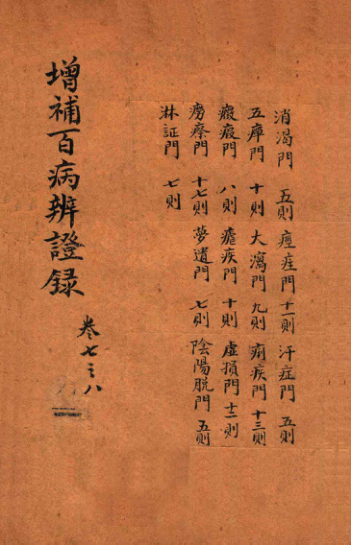 消渴門　五则　痙痓門　十一则　汗症門　五则
五癉門　十则　大瀉門　九则　痢疾門　十三则
癥瘕門　八则　瘧疾門　十则　虛損門　十二则
癆瘵門　十七则　夢遺門　七则　陰陽脫門　五则
淋証門　七则
增補百病辨證録
卷七之八